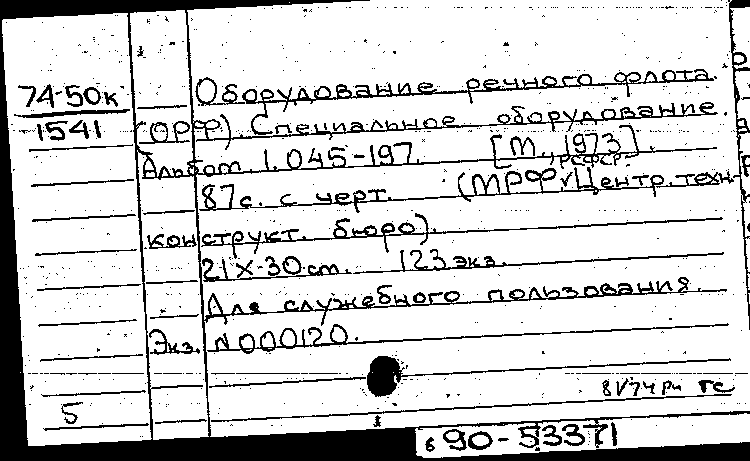 74-50к
1541
Оборудование речного флота.
(ОРФ). Специальное оборудование.
Альбом 1.045-197. [М., 1973].
РСФСР
87с. с черт. (МРФ. Центр. техн-
конструкт. бюро).
21х30 см. 123 экз.
Для служебного пользования.
Экз. N 000120.
5
гс
90-53371